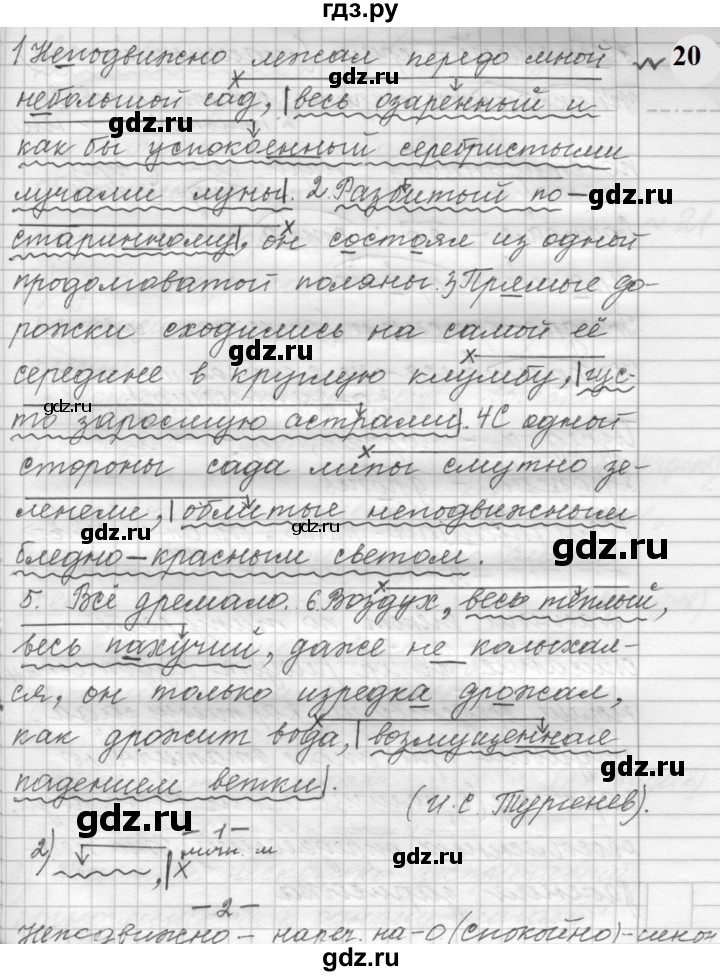 гдз.ру
20
1 Неподвижно лежал передо мной
небольшой сад, весь озаренный и
как бы успокоенный серебристыми
лучами луны. 2. Разбитый по-
старинному, он состоял из одной
продолговатой поляны. 3) Прямые до-
рожки сходились на самой её
середине в круглую клумбу, гус-
то заросшую астрами. 4 С одной
стороны сада липы смутно зе-
ленели, облитые неподвижным
бледно-красным светом.
5. Всё дремало. 6. Воздух, весь тёплый,
весь пахучий, даже не колыхал-
ся, он только изредка дрожал,
как дрожит вода, возмущенная
падением ветки.
(И.С. Тургенев).
- 1 -
2) личн. м
, X
- 2 -
Неподвижно - нареч. на -О (спокойно) -
gdz.ru
gdz.ru
gdz.ru
gdz.ru
gdz.ru
gdz.ru
gdz.ru
gdz.ru
gdz.ru
gdz.ru
gdz.ru
gdz.ru
gdz.ru